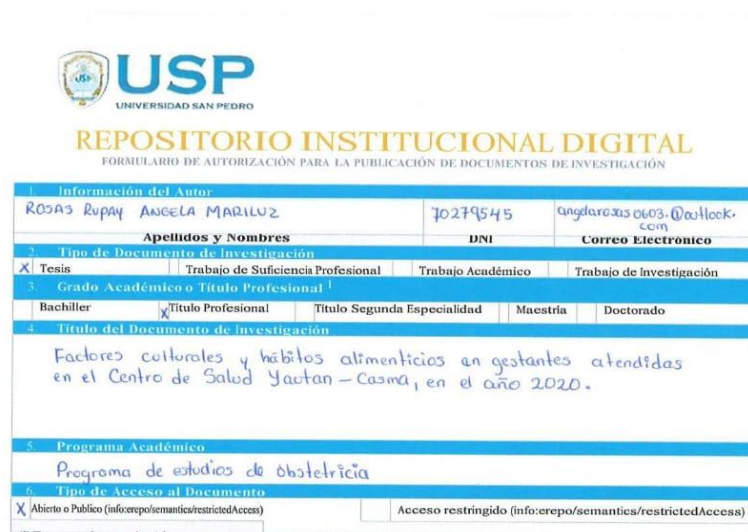 USP
UNIVERSIDAD SAN PEDRO
REPOSITORIO INSTITUCIONAL DIGITAL
FORMULARIO DE AUTORIZACIÓN PARA LA PUBLICACIÓN DE DOCUMENTOS DE INVESTIGACIÓN
1. Información del Autor
ROSAS RUPAY ANGELA MARILUZ 70279545 angelarosas0603.@outlook.
com
Apellidos y Nombres DNI Correo Electrónico
2. Tipo de Documento de Investigación
X Tesis Trabajo de Suficiencia Profesional Trabajo Académico Trabajo de Investigación
3. Grado Académico o Título Profesional 1
Bachiller X Título Profesional Título Segunda Especialidad Maestría Doctorado
4. Título del Documento de Investigación
Factores culturales y hábitos alimenticios en gestantes atendidas
en el Centro de Salud Yautan - Casma, en el año 2020.
5. Programa Académico
Programa de estudios de obstetricia
6. Tipo de Acceso al Documento
X Abierto o Publico (info:erepo/semantics/restrictedAccess) Acceso restringido (info:erepo/semantics/restrictedAccess)